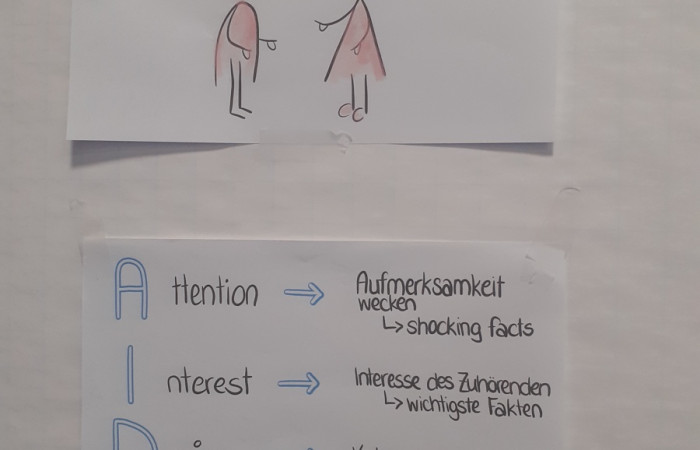 Attention → Aufmerksamkeit
wecken
↳ shocking facts
Interest → Interesse des Zuhörenden
↳ wichtigste Fakten
D